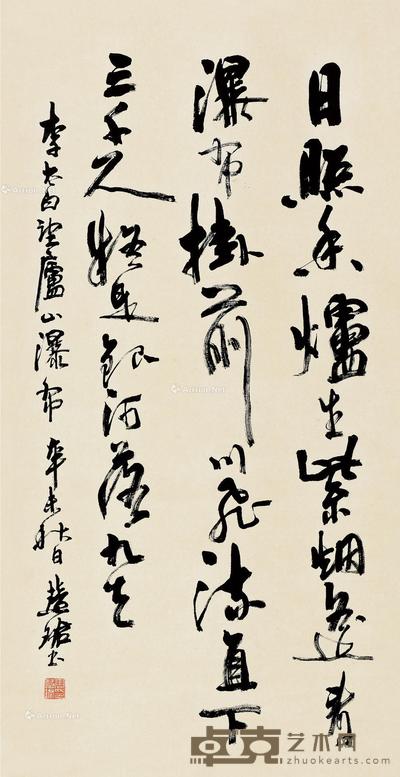 日照香爐生紫烟遥看
瀑布掛前川飛流直下
三千尺疑是銀河落九天
李太白望廬山瀑布 辛未秋日
卓克艺术网
zhuokearts.com